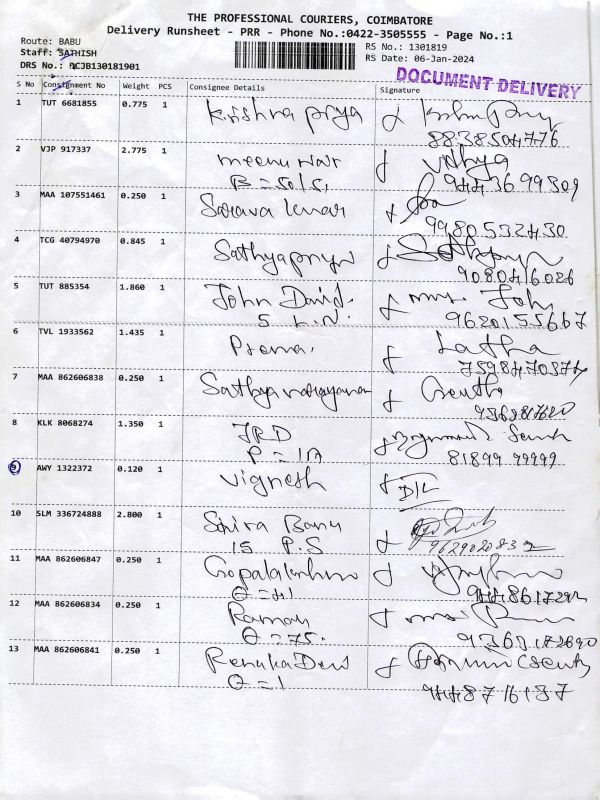 THE PROFESSIONAL COURIERS, COIMBATORE
Delivery Runsheet - PRR - Phone No.:0422-3505555 - Page No.:1
Route: BABU
Staff: SATHISH
DRS No.: RCJB130181901
RS No.: 1301819
RS Date: 06-Jan-2024
DOCUMENT DELIVERY
S No Consignment No Weight PCS Consignee Details Signature
1 TUT 6681855 0.775 1 Krishna priya
8838504776
2 VJP 917337 2.775 1 meenu Nair Vidhya
3 MAA 107551461 0.250 1 Sarava kumar
9980532430
4 TCG 40794970 0.845 1 Sathyapriya
9080416026
5 TUT 885354 1.860 1 John David. mrs. John
9620155667
6 TVL 1933562 1.435 1 Prema. Latha
7598470374
7 MAA 862606838 0.250 1 Sathyanarayanan Geetha
8 KLK 8068274 1.350 1 JRD
81899 99999
9 AWY 1322372 0.120 1 Vignesh D/L
10 SLM 336724888 2.800 1 Banu
15 P.S
11 MAA 862606847 0.250 1 Gopalakrishnan
12 MAA 862606834 0.250 1 Raman
13 MAA 862606841 0.250 1 Renuka Devi